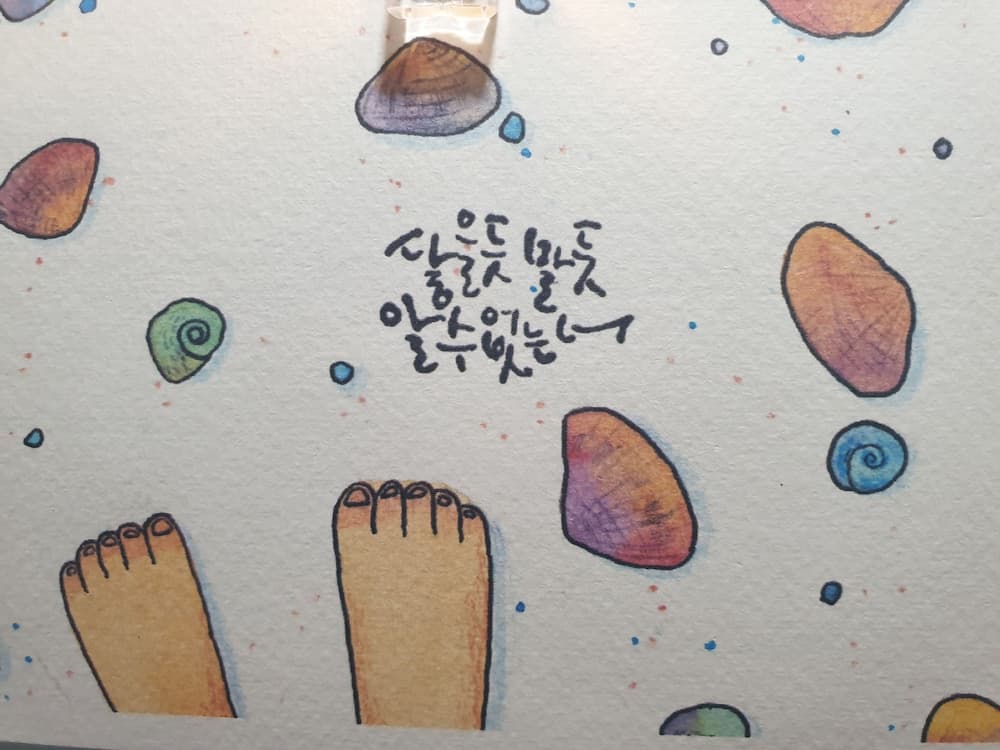 닿을듯 말듯
알수없는너